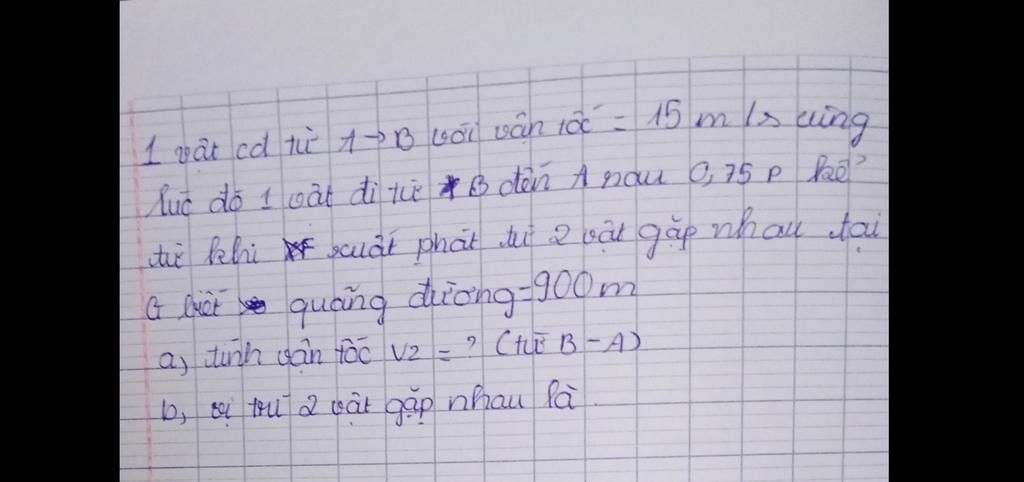 1 vật cđ từ A→B với vận tốc = 15 m/s cùng
lúc đó 1 vật đi từ B đến A sau 0,75 p kể
từ khi xuất phát từ 2 vật gặp nhau tại
G biết quãng đường=900m
a, tính vận tốc V2 = ? (từ B-A)
b, vị trí 2 vật gặp nhau là.